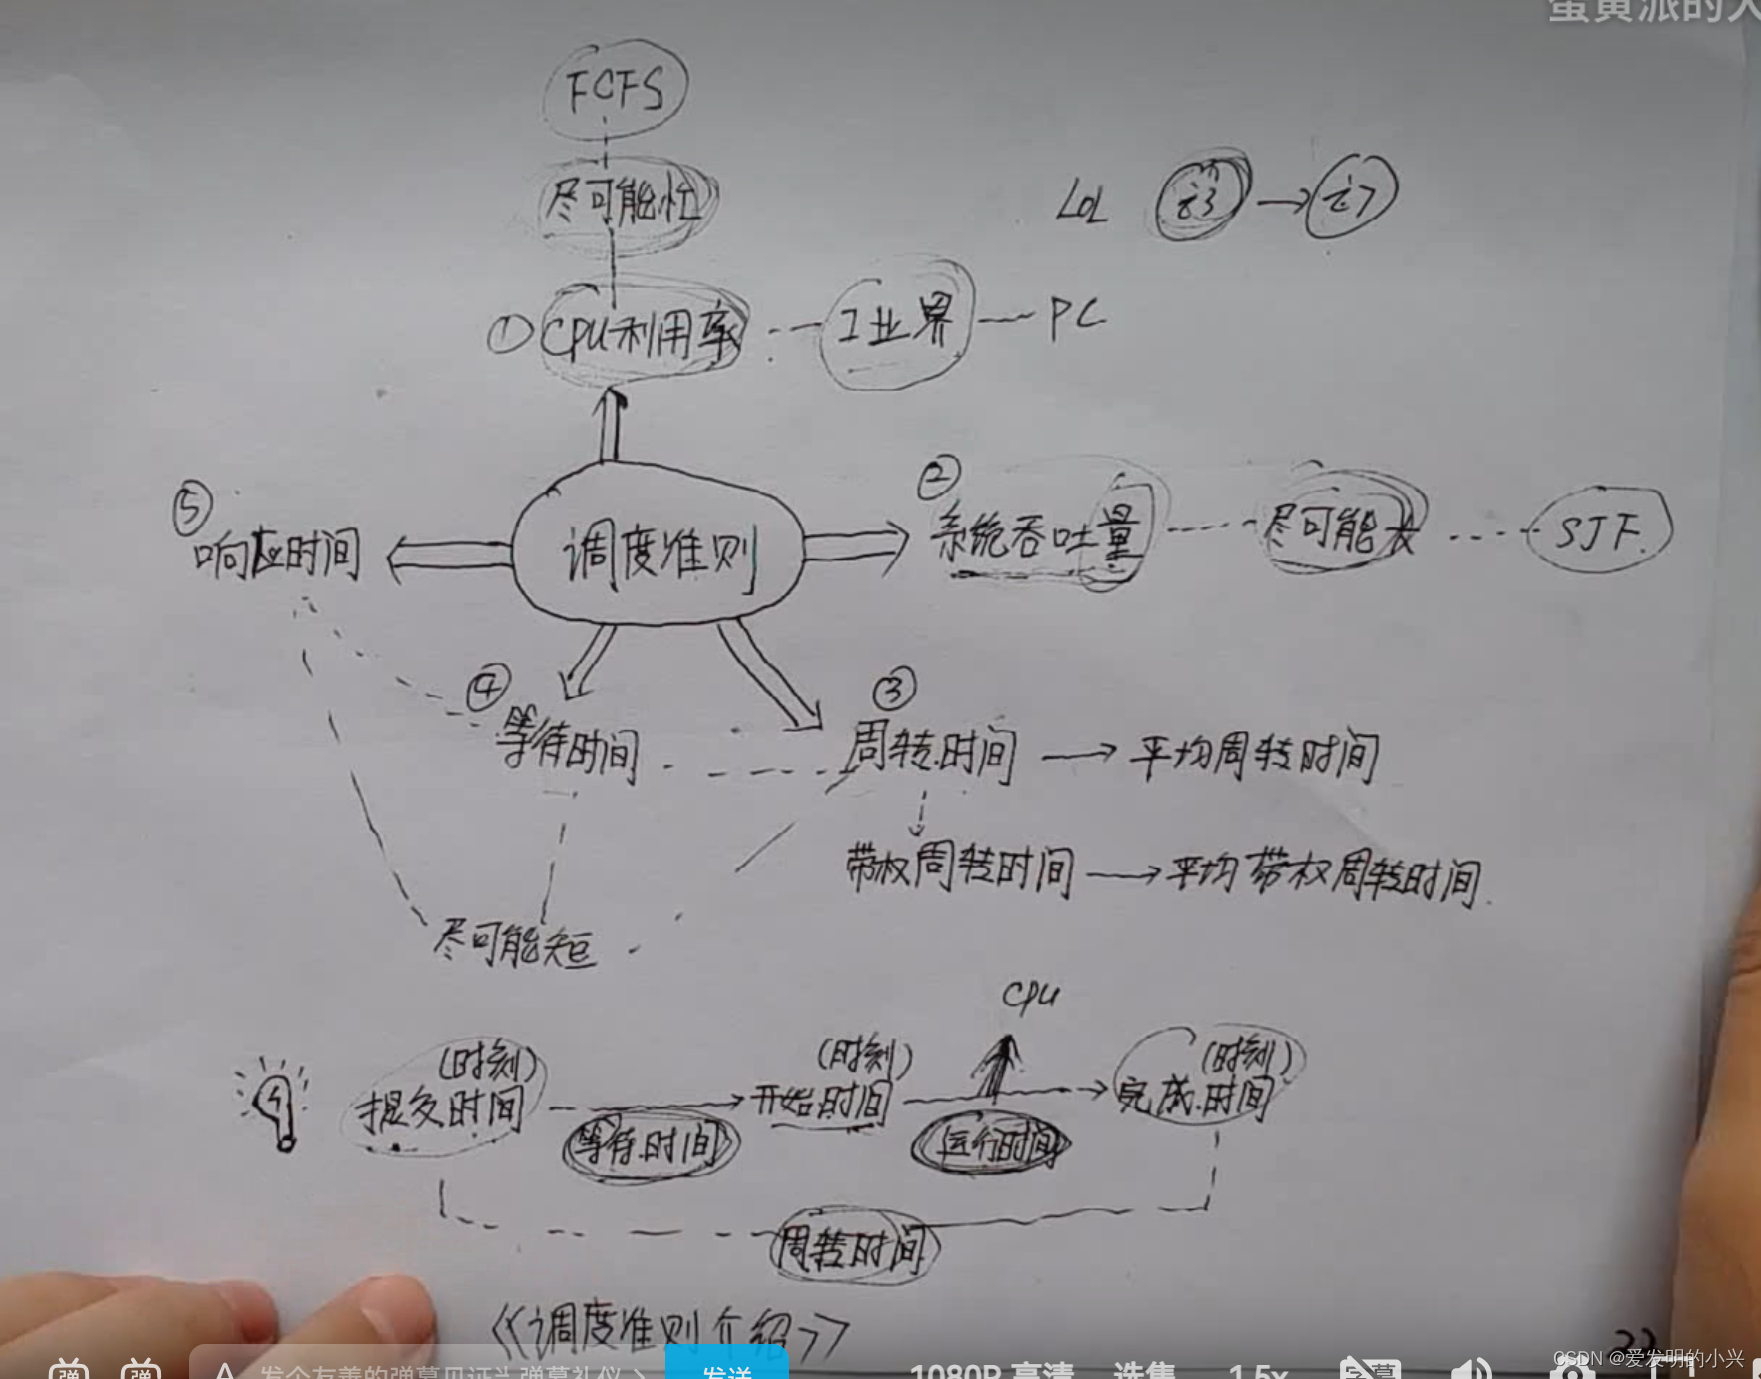 蛋黄派的大
FCFS
尽可能忙
LOL i3 → i7
① CPU利用率 工业界 — PC
②
⑤
系统吞吐量 尽可能大 SJF
响应时间 调度准则
④ ③
等待时间 周转时间 → 平均周转时间
带权周转时间 → 平均带权周转时间
尽可能短
CPU
(时刻) (时刻) (时刻)
提交时间 → 开始时间 → 完成时间
等待时间 运行时间
周转时间
《调度准则介绍》
发个友善的弹幕见证 弹幕礼仪 > 发送 1080P 高清 选集 1.5x
CSDN @爱发明的小兴